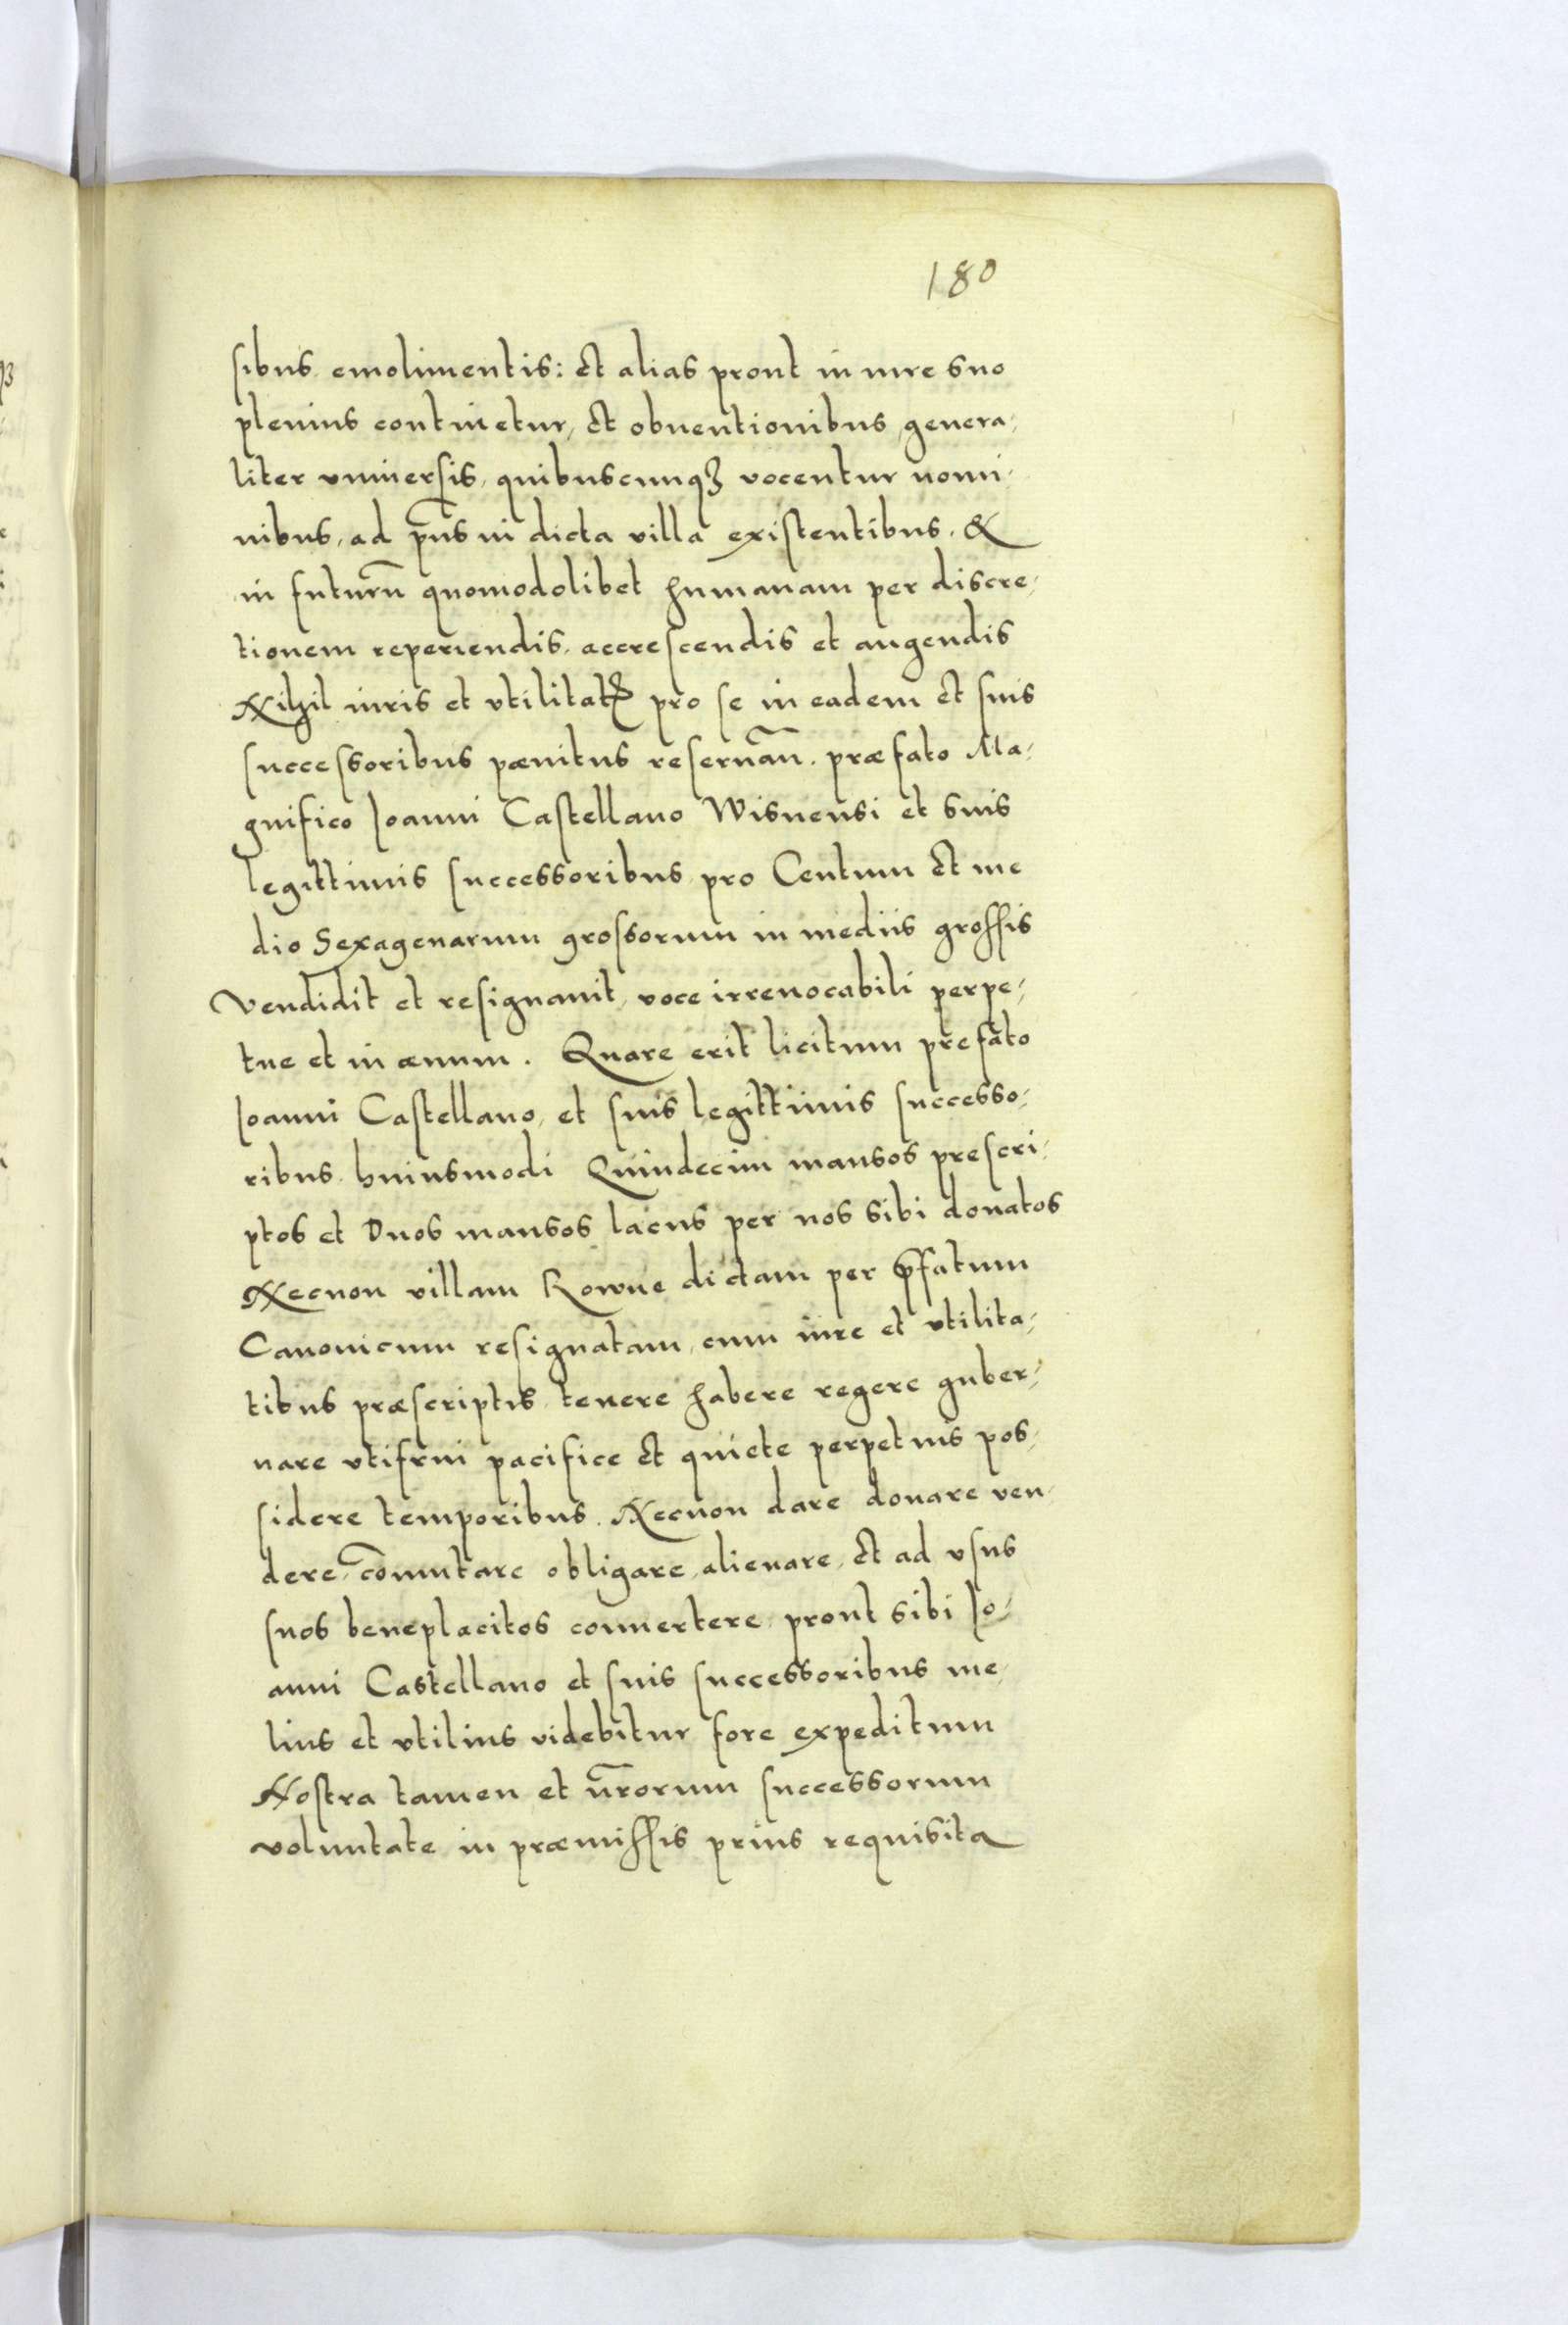 180
sibus emolimentis: et alias prout in iure suo
plenius continetur, et obuentionibus genera,
liter vniuersis, quibuscunqꝫ vocentur nomi,
nibus, ad p̄ns in dicta villa existentibus. &
in futurū quomodolibet humanam per discre,
tionem reperiendis, accrescendis et augendis
Nihil iuris et vtilitatꝭ pro se in eadem et suis
successoribus pænitus reseruāń. præfato Ma,
gnifico Ioanni Castellano Wisnensi et suis
legittimis successoribus pro Centum et me
dio Sexagenarum grossorum in mediis grossis
Vendidit et resignauit, voce irreuocabili perpe,
tue et in æuum. Quare erit licitum prefato
Ioanni Castellano, et suis legittimis successo,
ribus huiusmodi Quindecim mansos prescri,
ptos et Duos mansos lacus per nos sibi donatos
Necnon villam Rowne dictam per p̄fatum
Canonicum resignatam, cum iure et vtilita,
tibus præscriptis tenere habere regere guber,
nare vtifrui pacifice et quiete perpetuis pos,
sidere temporibus. Necnon dare donare ven,
dere, cōmutare obligare, alienare, et ad vsus
suos beneplacitos conuertere, prout sibi Io,
anni Castellano et suis successoribus me,
lius et vtilius videbitur fore expeditum
Nostra tamen et n̄rorum successorum
voluntate in præmissis prius requisita